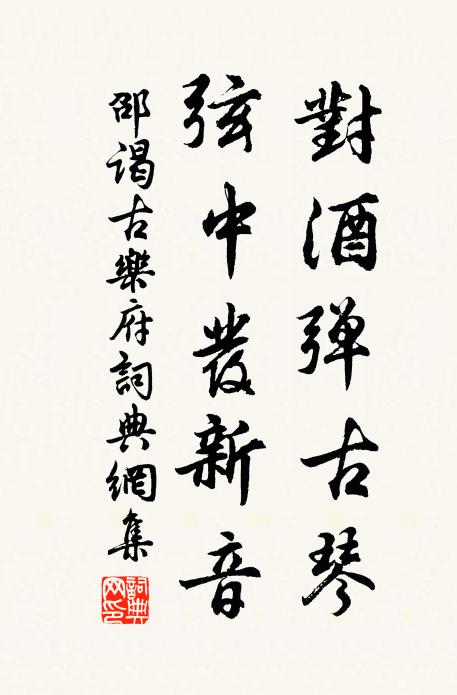 對酒弾古琴
弦中發新音
邵謁古樂府詞典網集
詞典网印